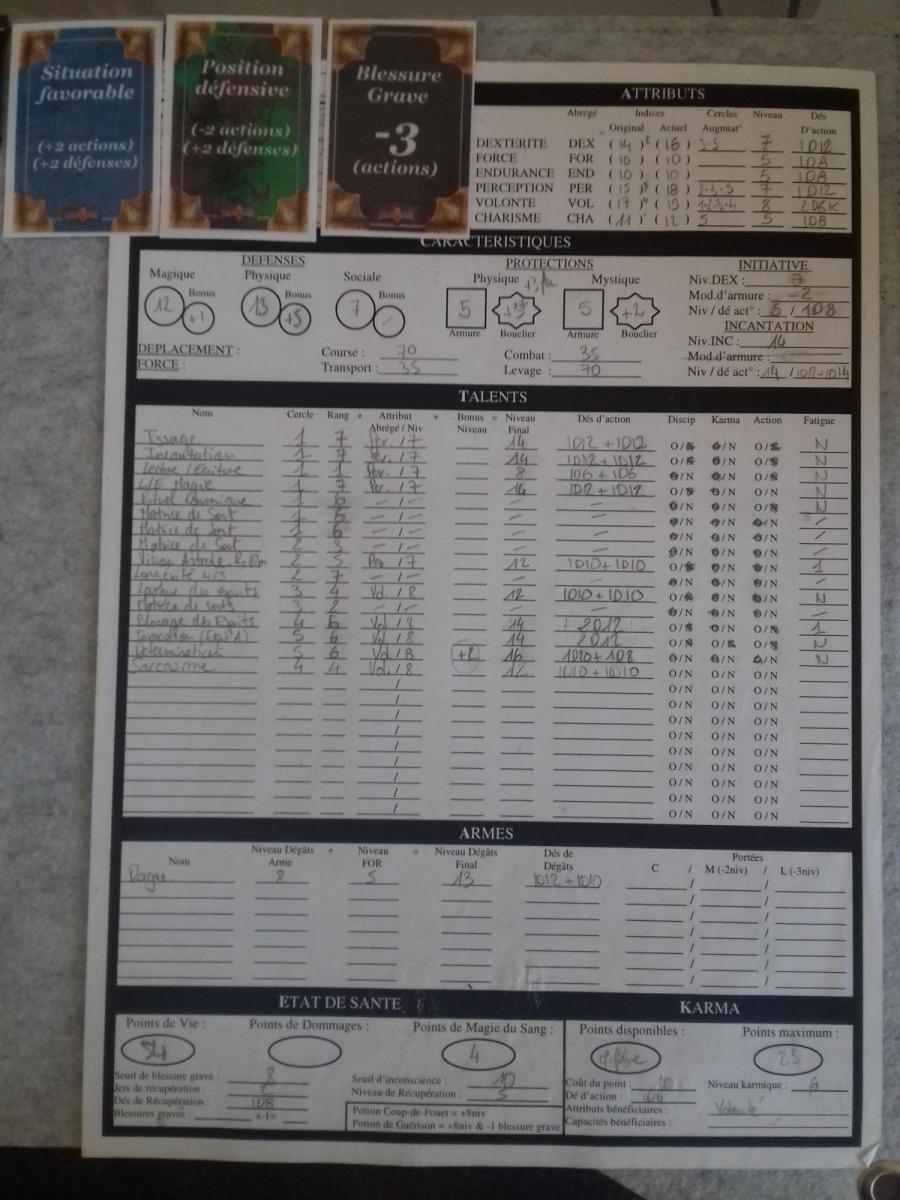 Situation
favorable
(+2 actions)
(+2 défenses)
Position
défensive
(-2 actions)
(+2 défenses)
Blessure
Grave
-3
(actions)
ATTRIBUTS
Abrégé Indices Cercles Niveau Dés
Original Actuel Augmtat° D'action
DEXTERITE DEX (14) (16) 7 1D12
FORCE FOR (10) (10) 5 1D8
ENDURANCE END (10) (10) 5 1D8
PERCEPTION PER (15) (18) 7 1D12
VOLONTE VOL (17) (19) 8
CHARISME CHA (11) (12) 5 5 1D8
CARACTERISTIQUES
DEFENSES
Magique Physique Sociale
12 Bonus +1 13 Bonus +5 7 Bonus
PROTECTIONS
Physique Mystique
5 5 +2
Armure Bouclier Armure Bouclier
INITIATIVE
Niv.DEX : 7
Mod.d'armure : -2
Niv / dé act° : 5 / 1D8
INCANTATION
Niv.INC : 14
Mod.d'armure :
Niv / dé act° : 14
DEPLACEMENT : Course : 70 Combat : 35
FORCE : Transport : 35 Levage : 70
TALENTS
Nom Cercle Rang + Attribut + Bonus = Niveau Dés d'action Discip Karma Action Fatigue
Abrégé / Niv Niveau Final
Tissage 1 7 Per. / 7 14 1D12 + 1D12 O/N O/N O/N N
Incantation 1 7 Per. / 7 14 1D12 + 1D12 O/N O/N O/N N
Lecture / Ecriture 1 1 Per. / 7 8 1D6 + 1D6 O/N O/N O/N N
L/E Magie 1 7 Per. / 7 14 1D12 + 1D12 O/N O/N O/N N
Rituel Karmique 1 6 - / - O/N O/N O/N N
Matrice de Sort 1 6 - / - - - O/N O/N O/N
Matrice de Sort 1 6 - / - - - O/N O/N O/N
Matrice de Sort 2 3 - / - - - O/N O/N O/N
Vision Astrale 2 5 Per / 7 12 1D10 + 1D10 O/N O/N O/N 1
Longévité 2 7 - / - O/N O/N O/N
esprits 3 4 Vol. / 8 12 1D10 + 1D10 O/N O/N O/N N
Matrice de sorts 3 2 - / - - - O/N O/N O/N
Blocage des Esprits 4 6 Vol / 8 14 2D12 O/N O/N O/N 1
Invocation 5 6 Vol / 8 14 2D12 O/N O/N O/N N
Détermination 5 6 Vol / 8 +2 16 O/N O/N O/N N
Sarcasme 4 4 Vol. / 8 12 1D10 + 1D10 O/N O/N O/N
/ O/N O/N O/N
/ O/N O/N O/N
/ O/N O/N O/N
/ O/N O/N O/N
/ O/N O/N O/N
/ O/N O/N O/N
/ O/N O/N O/N
/ O/N O/N O/N
/ O/N O/N O/N
ARMES
Nom Niveau Dégâts + Niveau = Niveau Dégâts Dés de Portées
Arme FOR Final Dégâts C / M (-2niv) / L (-3niv)
Dague 8 5 13 1D12 + 1D10
ETAT DE SANTE
Points de Vie : Points de Dommages : Points de Magie du Sang :
54 4
Seuil de blessure grave : 8 Seuil d'inconscience :
Jets de récupération : Niveau de Récupération : 5
Dés de Récupération : 1D8
Blessures graves : x-1=
Potion Coup-de-Fouet = +8niv
Potion de Guérison = +8niv & -1 blessure grave
KARMA
Points disponibles : Points maximum :
25
Coût du point : 10 Niveau karmique : 6
Dé d'action : 1D6
Attributs bénéficiaires : Volonté
Capacités bénéficiaires :